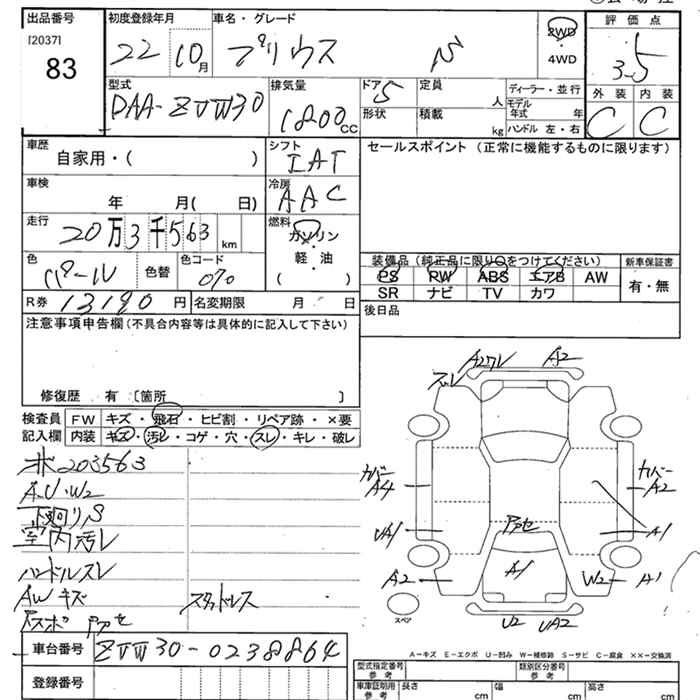 出品番号 初度登録年月 車名・グレード 評価点
[2037]
83
22 10月 プリウス S
2WD
・
4WD
3.5
型式 排気量 ドア 5 定員 人 ディーラー・並行
DAA-ZVW30 1800cc
形状 積載 kg モデル年式 年
ハンドル 左・右
外装 内装
C C
車歴 シフト セールスポイント(正常に機能するものに限ります)
自家用・( ) IAT
車検 冷房
年 月( 日) AAC
走行 燃料
20万3千563km ガソリン
軽・油
( )
色 色替 色コード
パール 070
装備品(純正品に限り○をつけてください) 新車保証書
PS RW ABS エアB AW 有・無
SR ナビ TV カワ
R券 13190円 名変期限 月 日
後日品
注意事項申告欄(不具合内容等は具体的に記入して下さい)
修復歴 有 〔箇所 〕
検査員 FW キズ・飛石・ヒビ割・リペア跡・×要
記入欄 内装 キズ・汚レ・コゲ・穴・スレ・キレ・破レ
メ 203563
A.U.W2
下廻りS
室内汚レ
ハンドルスレ
AWキズ スタッドレス
A2ワレ A2
ズレ
カバー カバー
A4 A2
UA1 アセ A1
A1
A2 W2 A1
スペア
U2 UA2
A-キズ E-エクボ U-凹み W-補修跡 S-サビ C-腐食 ××-交換済
車台番号 ZVW30-0238864
登録番号
型式指定番号 参考 類別区分番号 参考
車庫証明用 参考 長さ cm 幅 cm 高さ cm